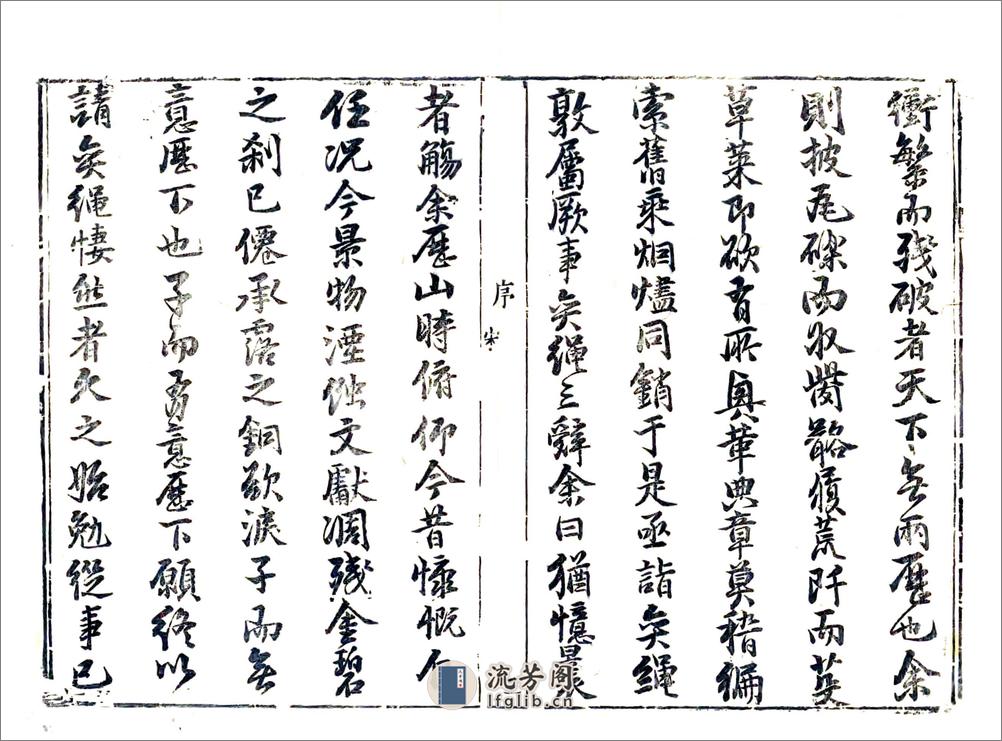 衝繁而殘破者天下無兩歷也余
則披瓦礫而収胔骼墾荒阡而芟
草萊即欲有所興葺典章莫稽編
索舊乘烟燼同銷于是亟詣奕繩
敦屬厥事奕繩三辭余曰猶憶曩
序
者觴余歷山時俯仰今昔慷慨
任况今景物湮蝕文獻凋殘金碧
之刹已僊承露之銅欲淚子而無
意歷下也子而有意歷下願終以
請奕繩悽然者久之始勉從事已
流芳阁
lfglib.cn